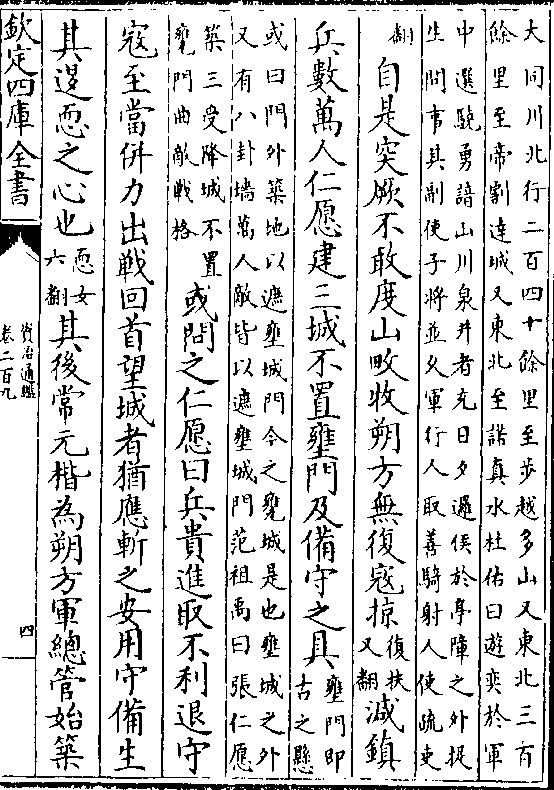 大同川北行二百四十餘里至步越多山又東北三百
餘里至帝割達城又東北至諾真水杜佑曰遊奕於軍
中選驍勇諳山川泉井者充日夕邏候於亭障之外捉
生問事其副使子將並久軍行人取善騎射人使疏吏
翻自是突厥不敢度山畋牧朔方無復寇掠復扶
又翻減鎮
兵數萬人仁愿建三城不置壅門及備守之具壅門即
古之懸
或曰門外築地以遮壅城門今之甕城是也壅城之外
又有八卦墻萬人敵皆以遮壅城門范祖禹曰張仁愿
築三受降城不置
甕門曲敵戰格或問之仁愿曰兵貴進取不利退守
寇至當併力出戰回首望城者猶應斬之安用守備生
其退恧之心也恧女
六翻其後常元楷為朔方軍總管始築
欽定四庫全書
資治通鑑
卷二百九
四